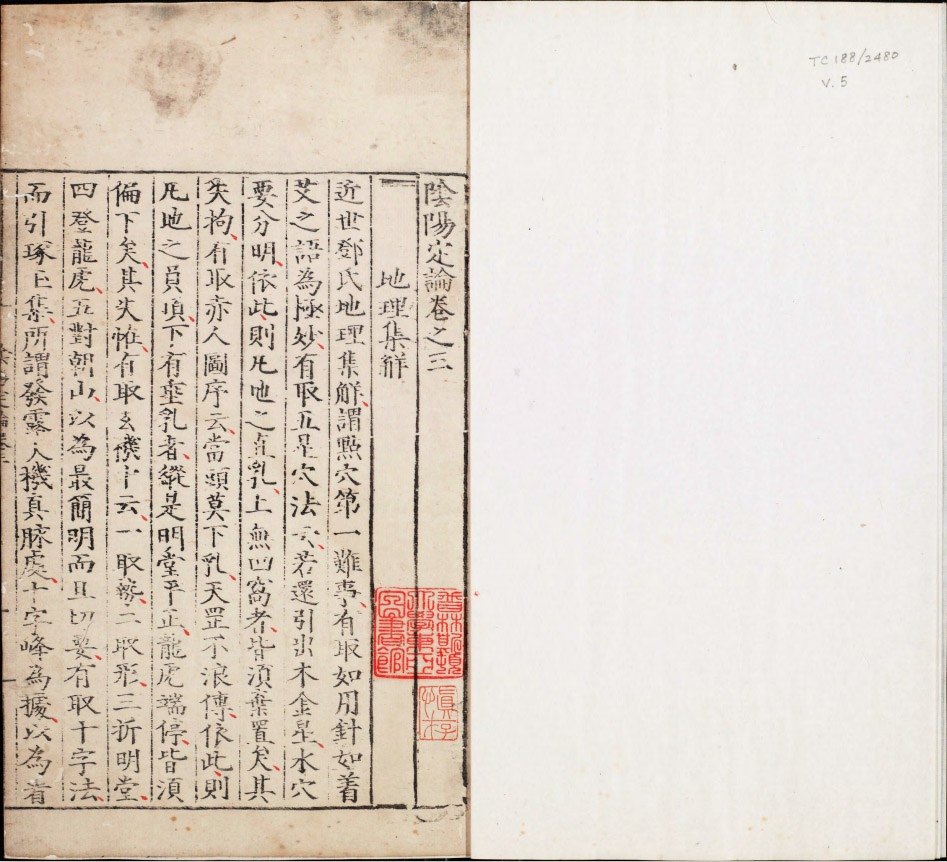 TC 188/2480
V. 5
陰陽定論卷之三
地理集解
近世鄧氏地理集解謂㸃穴第一難事有取如用針如着
艾之語為極妙有取五星穴法云若還引出木金星水穴
要分明依此則凡地之直乳上無凹窩者皆須棄置矣其
失拘有取赤人圖序云當頭莫下乳天罡不浪傳依此則
凡地之員項下有垂乳者縱是明堂平正龍虎端停皆須
偏下矣其失恠有取玄機云一取勢二取形三折明堂
四登龍虎五對朝山以為最簡明而且切要有取十字法
而引琢玉集所謂發露人機真脉處十字峰為據以為者
普林斯頓
大學東方
圖書館
慎存